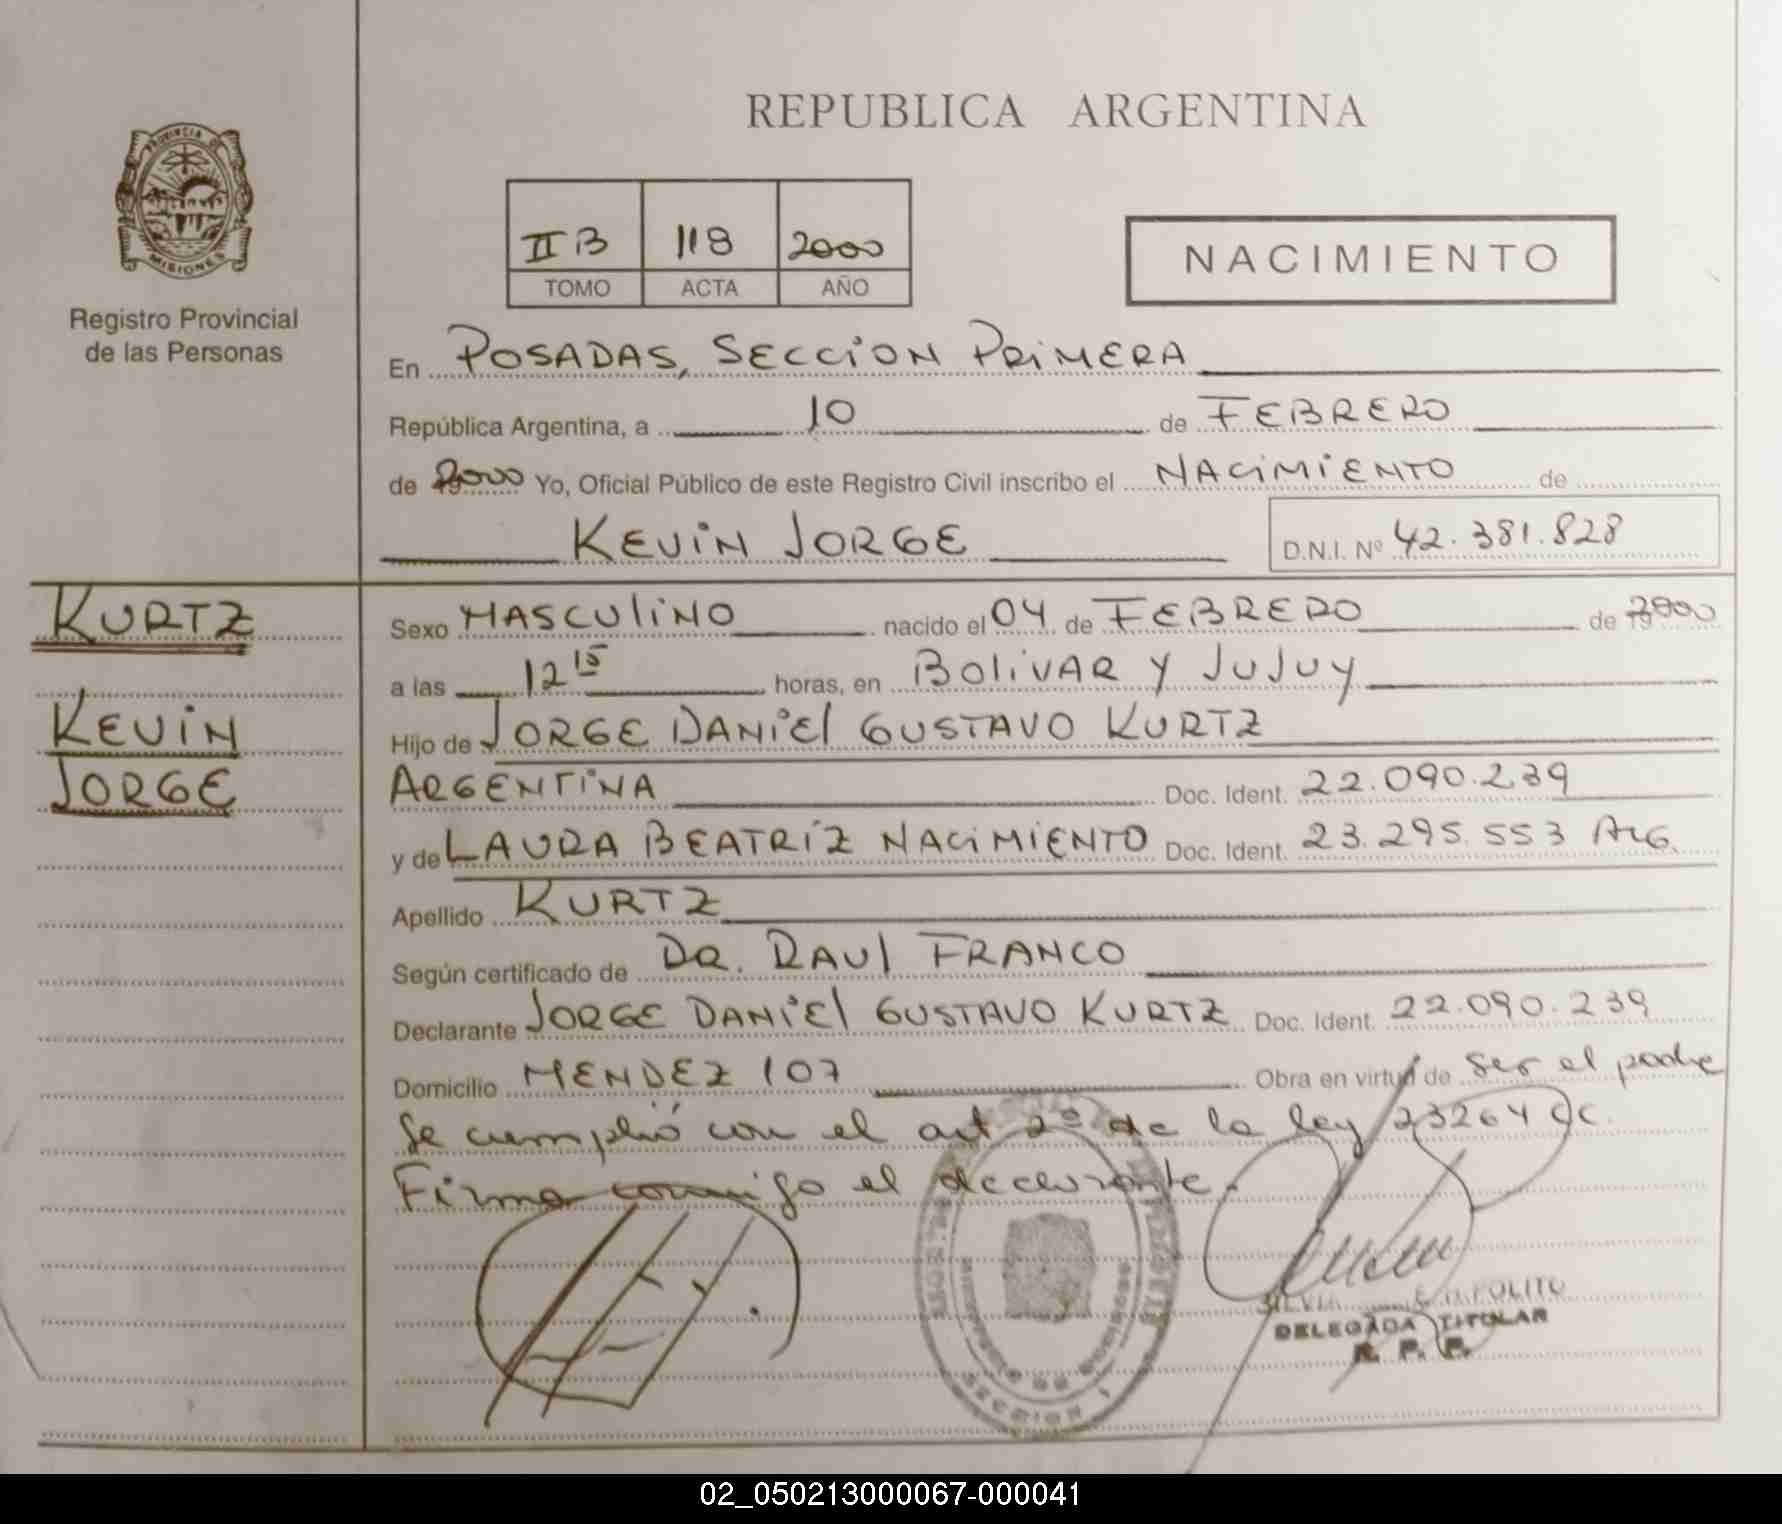 PROVINCIA DE
MISIONES
Registro Provincial
de las Personas
REPUBLICA ARGENTINA
II B 118 2000
TOMO ACTA AÑO
NACIMIENTO
En POSADAS, SECCION PRIMERA
República Argentina, a 10 de FEBRERO
de 2000 Yo, Oficial Público de este Registro Civil inscribo el NACIMIENTO de
KEVIN JORGE
D.N.I. Nº 42.381.828
KURTZ
KEVIN
JORGE
Sexo MASCULINO nacido el 04 de FEBRERO de 2000
a las 12 15 horas, en BOLIVAR Y JUJUY
Hijo de JORGE DANIEL GUSTAVO KURTZ
ARGENTINA Doc. Ident. 22.090.239
y de LAURA BEATRIZ NACIMIENTO Doc. Ident. 23.295.553 ARG.
Apellido KURTZ
Según certificado de DR. RAUL FRANCO
Declarante JORGE DANIEL GUSTAVO KURTZ Doc. Ident. 22.090.239
Domicilio MENDEZ 107 Obra en virtud de ser el padre
Se cumplió con el art 2º de la ley 23264 CC.
Firma conmigo el declarante.
SILVIA E. HIPOLITO
DELEGADA TITULAR
R. P. P.
SECCION 1
02_050213000067-000041